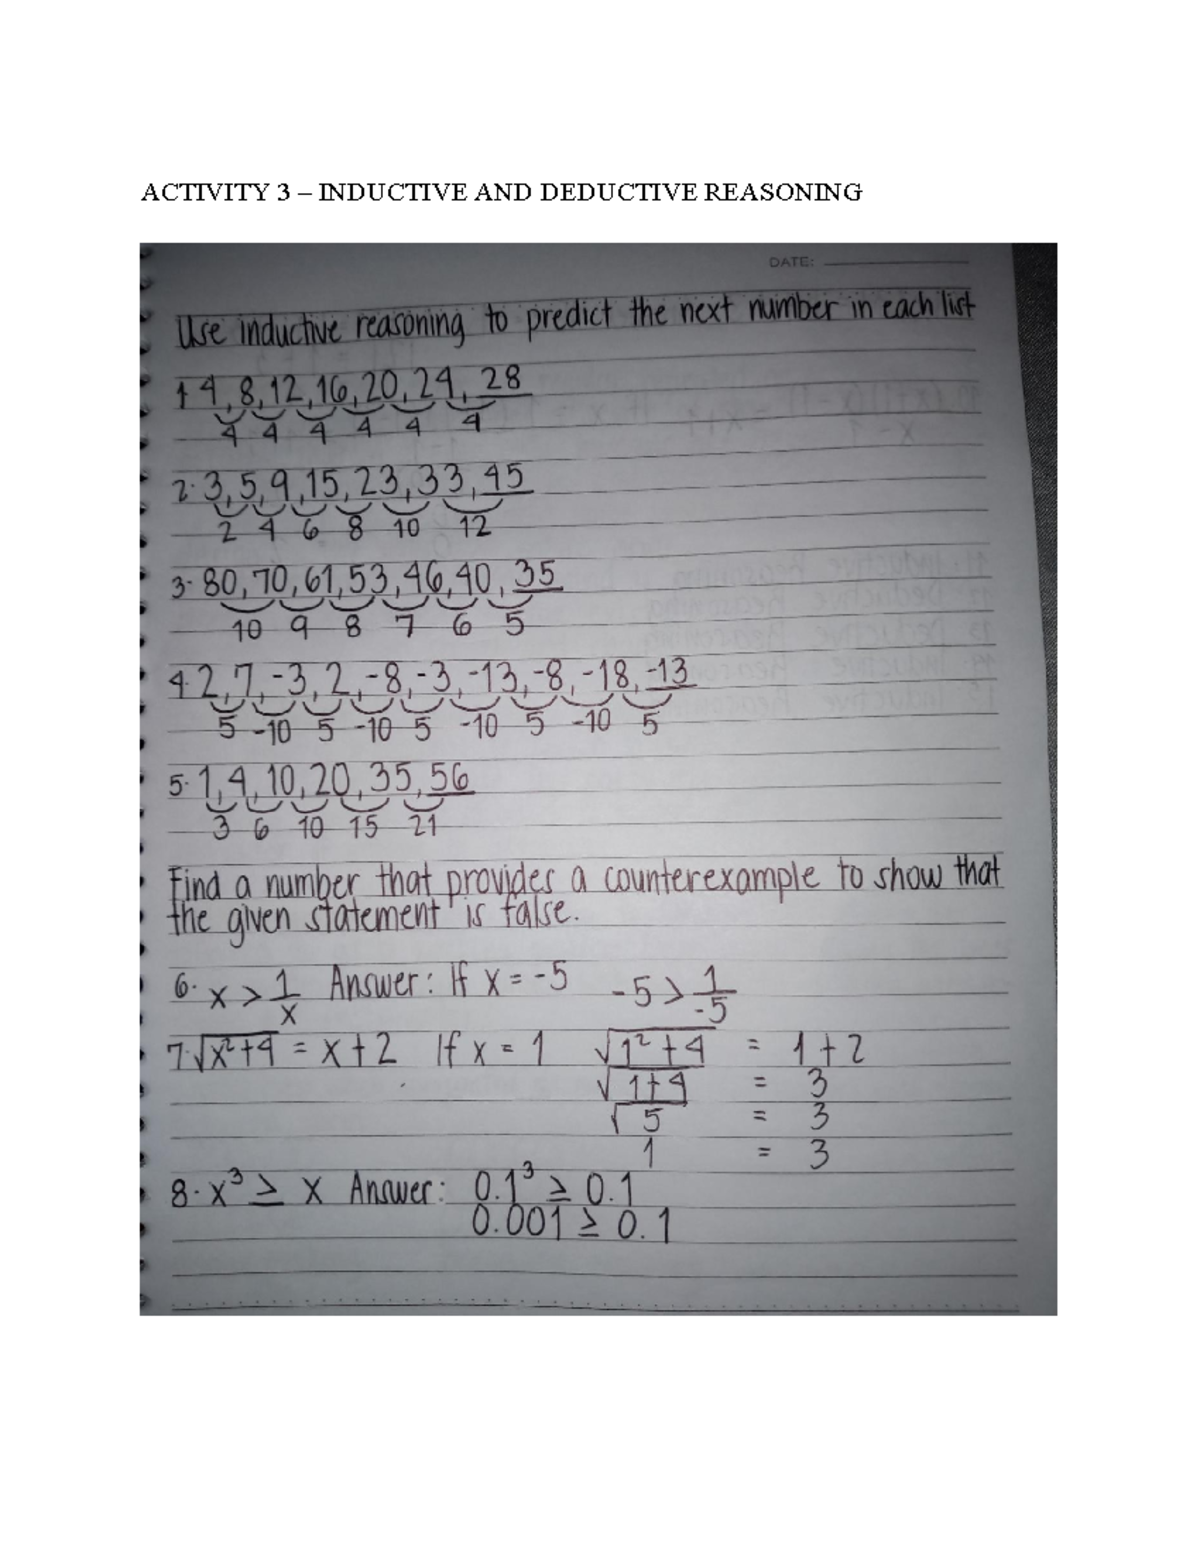 ACTIVITY 3 – INDUCTIVE AND DEDUCTIVE REASONING
DATE:
Use inductive reasoning to predict the next number in each list
1. 4, 8, 12, 16, 20, 24, 28
4 4 4 4 4 4
2. 3, 5, 9, 15, 23, 33, 45
2 4 6 8 10 12
3. 80, 70, 61, 53, 46, 40, 35
10 9 8 7 6 5
4. 2, 7, -3, 2, -8, -3, -13, -8, -18, -13
5 -10 5 -10 5 -10 5 -10 5
5. 1, 4, 10, 20, 35, 56
3 6 10 15 21
Find a number that provides a counterexample to show that
the given statement is false.
6. x > 1/x Answer: If x = -5 -5 > 1/-5
7. √x²+4 = x + 2 If x = 1 √1²+4 = 1 + 2
√1+4 = 3
√5 = 3
1 = 3
8. x³ ≥ x Answer: 0.1³ ≥ 0.1
0.001 ≥ 0.1